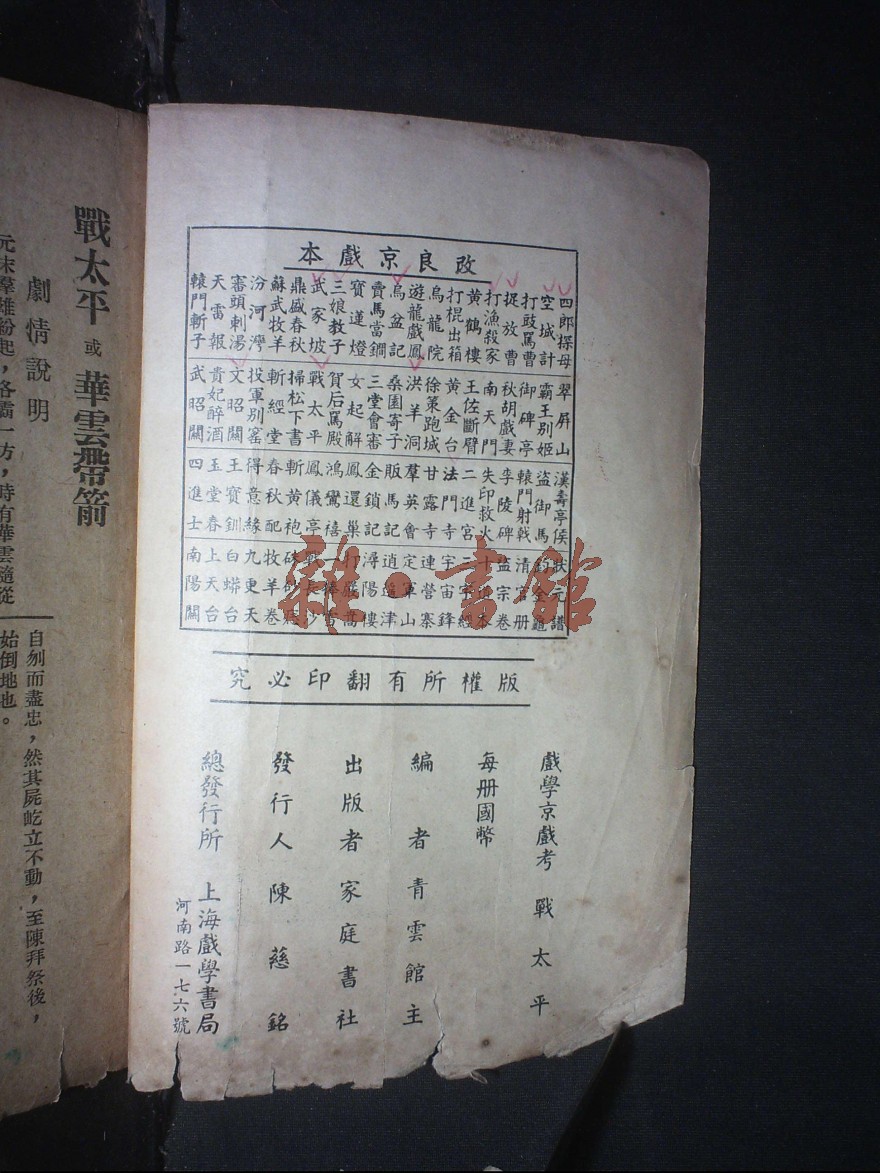 改良京戲本
四郎探母
空城計
打鼓罵曹
捉放曹
打漁殺家
黃鶴樓
打棍出箱
烏龍院
遊龍戲鳳
烏盆記
賣馬當鐧
寶蓮燈
三娘教子
武家坡
鼎盛春秋
蘇武牧羊
汾河灣
審頭刺湯
天雷報
轅門斬子
翠屏山
霸王別姬
御碑亭
秋胡戲妻
南天門
王佐斷臂
黃金台
徐策跑城
洪羊洞
桑園寄子
三堂會審
女起解
賀后罵殿
戰太平
掃松下書
斬經堂
投軍別窰
文昭關
貴妃醉酒
武昭關
漢壽亭侯
盜御馬
轅門射戟
李陵碑
失印救火
二進宮
法門寺
甘露寺
羣英會
販馬記
金鎖記
鳳還巢
鴻鸞禧
鳳儀亭
斬黃袍
春秋配
得意緣
王寶釧
玉堂春
四進士
狀元譜
釣金龜
清官冊
盜宗卷
十道本
宇宙鋒
連營寨
定軍山
逍遙津
潯陽樓
打嚴嵩
一捧雪
戰長沙
硃砂痣
牧羊卷
九更天
白蟒台
上天台
南陽關
版權所有翻印必究
戲學京戲考 戰太平
每冊國幣
編者青雲館主
出版者家庭書社
發行人陳慈銘
總發行所 上海戲學書局
河南路一七六號
戰太平 或 華雲帶箭
劇情說明
元末羣雄紛起，各霸一方，時有華雲隨從
自刎而盡忠，然其屍屹立不動，至陳拜祭後，
始倒地也。
雜·書館